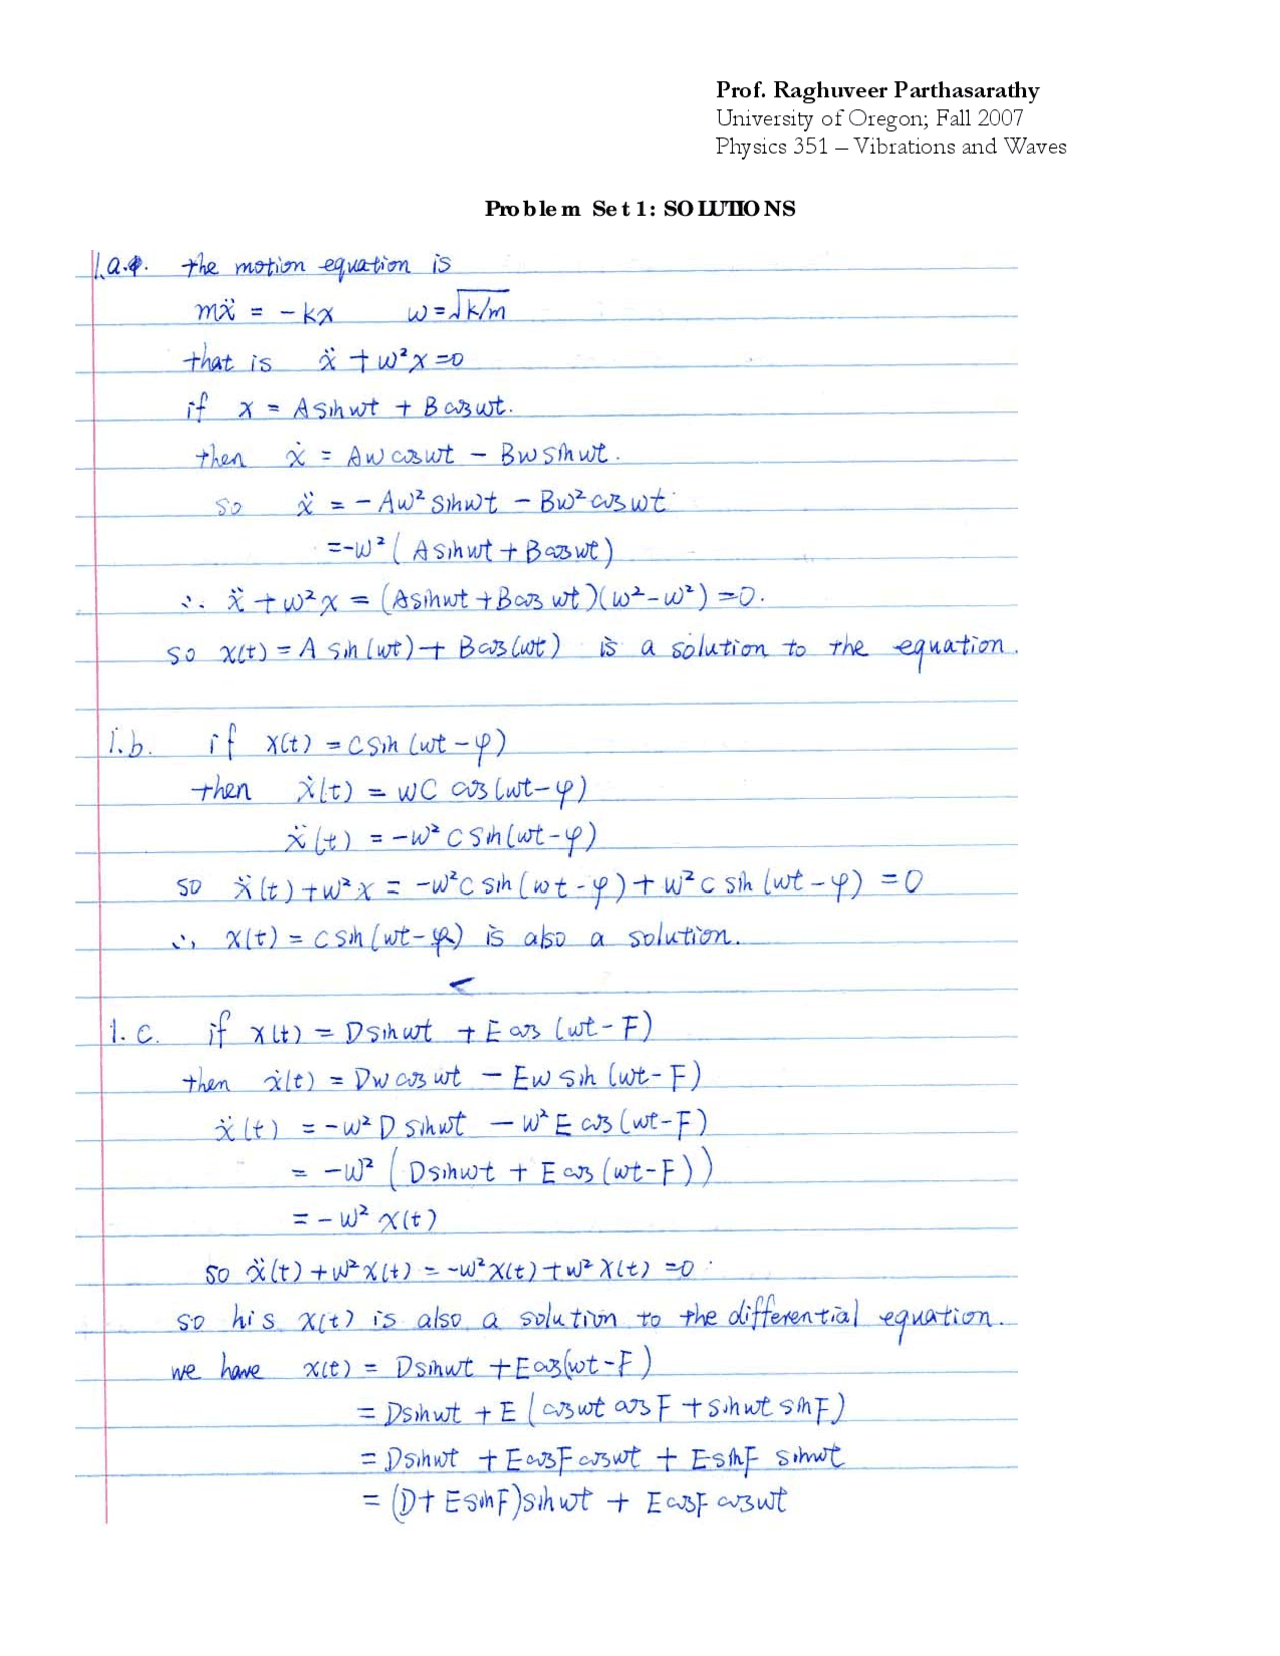 Prof. Raghuveer Parthasarathy
University of Oregon; Fall 2007
Physics 351 – Vibrations and Waves
Problem Set 1: SOLUTIONS
1.a. the motion equation is
mẍ = -kx ω=√k/m
that is ẍ + ω²x=0
if x = A sinωt + B cosωt.
then ẋ = Aω cosωt - Bω sinωt.
so ẍ = -Aω² sinωt - Bω² cosωt.
=-ω² (A sinωt + B cosωt)
∴ ẍ + ω²x = (A sinωt + B cos ωt)(ω²-ω²) = 0.
so x(t) = A sin(ωt) + B cos(ωt) is a solution to the equation.
1.b. if x(t) = C sin (ωt - φ)
then ẋ(t) = ωC cos (ωt-φ)
ẍ(t) = -ω² C sin(ωt-φ)
so ẍ(t) + ω²x = -ω²C sin(ωt-φ) + ω²C sin (ωt-φ) = 0
∴ x(t) = C sin(ωt-φ) is also a solution.
1.c. if x(t) = D sinωt + E cos (ωt-F)
then ẋ(t) = Dω cos ωt - Eω sin (ωt-F)
ẍ(t) = -ω² D sinωt - ω² E cos (ωt-F)
= -ω² (D sinωt + E cos (ωt-F))
= -ω² x(t)
so ẍ(t) + ω²x(t) = -ω²x(t) + ω²x(t) = 0.
so his x(t) is also a solution to the differential equation.
we have x(t) = D sinωt + E cos(ωt-F)
= D sinωt + E (cosωt cos F + sinωt sin F)
= D sinωt + E cosF cosωt + E sinF sinωt
= (D + E sinF) sinωt + E cosF cosωt